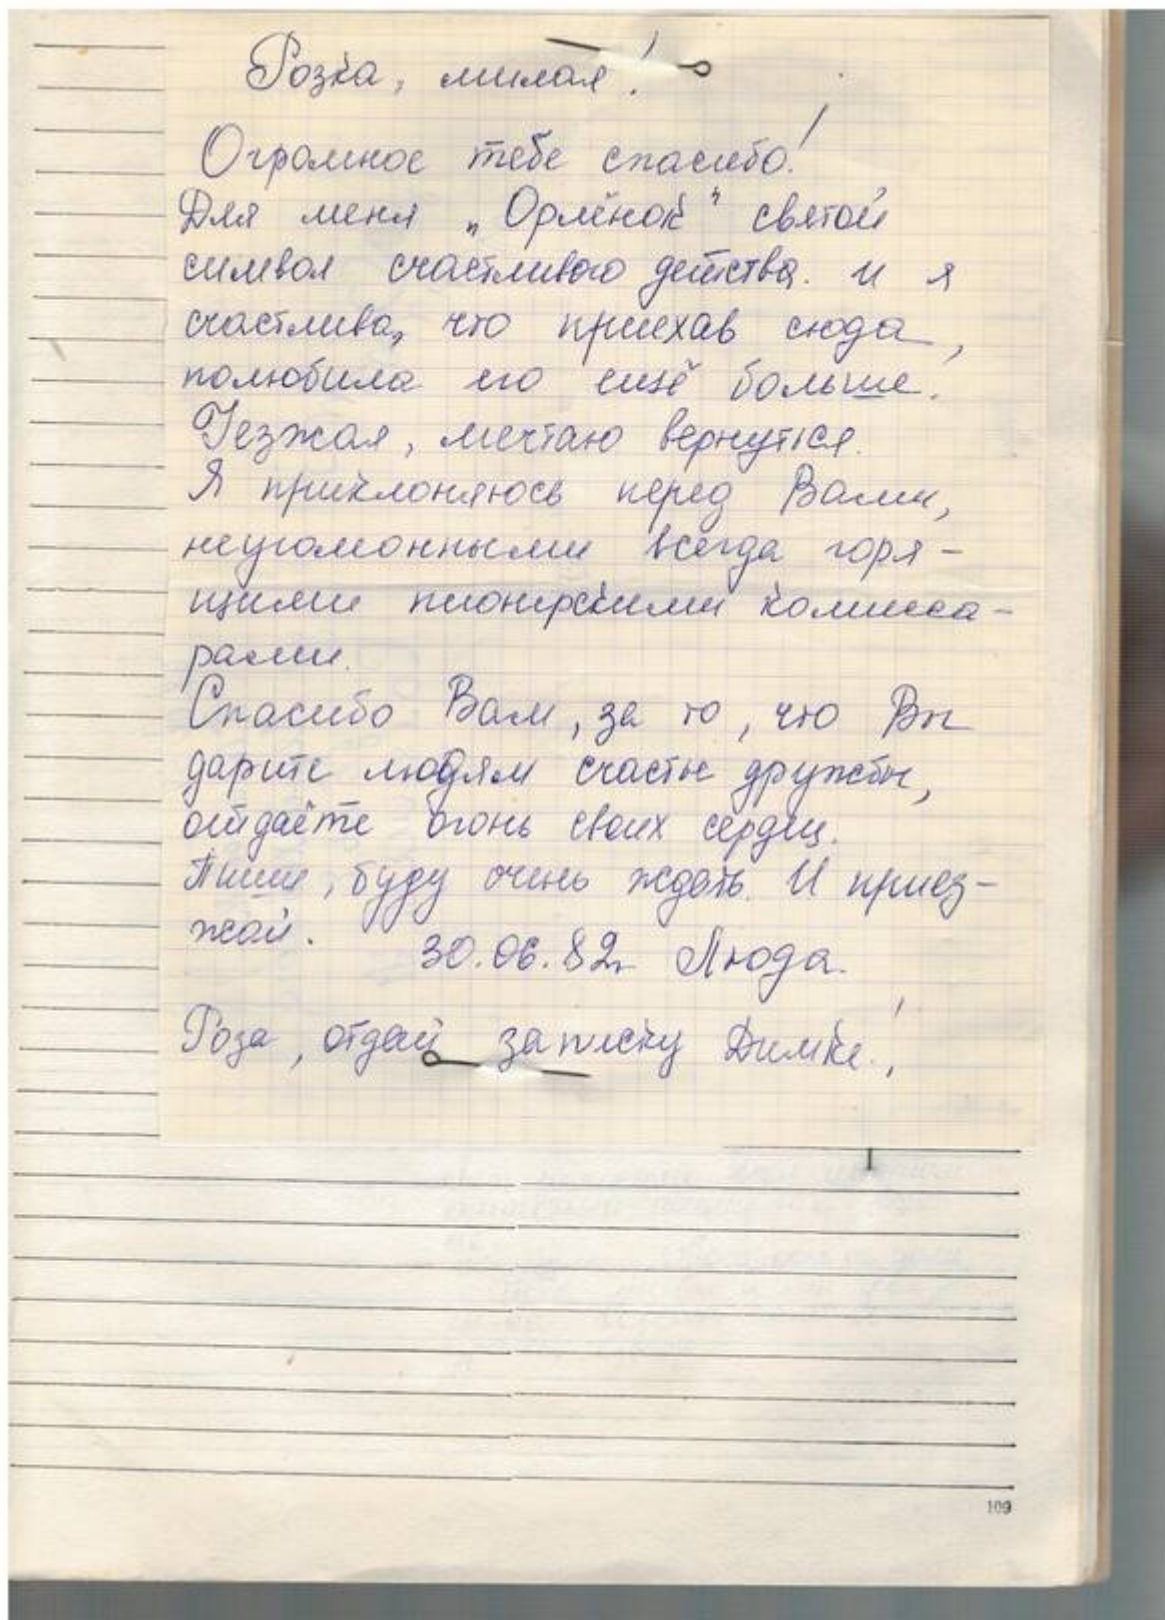 Розка, милая!
Огромное тебе спасибо!
Для меня „Орлёнок" святой
символ счастливого детства. и я
счастлива, что приехав сюда,
полюбила его ещё больше.
Уезжая, мечтаю вернуться.
Я приклоняюсь перед Вами,
неугомонными всегда горя-
щими пионерскими комисса-
рами.
Спасибо Вам, за то, что Вы
дарите людям счастье дружбы,
отдаёте огонь своих сердец.
Пиши, буду очень ждать. И приез-
жай.
30.06.82г. Люда.
Роза, отдай записку Димке!
109